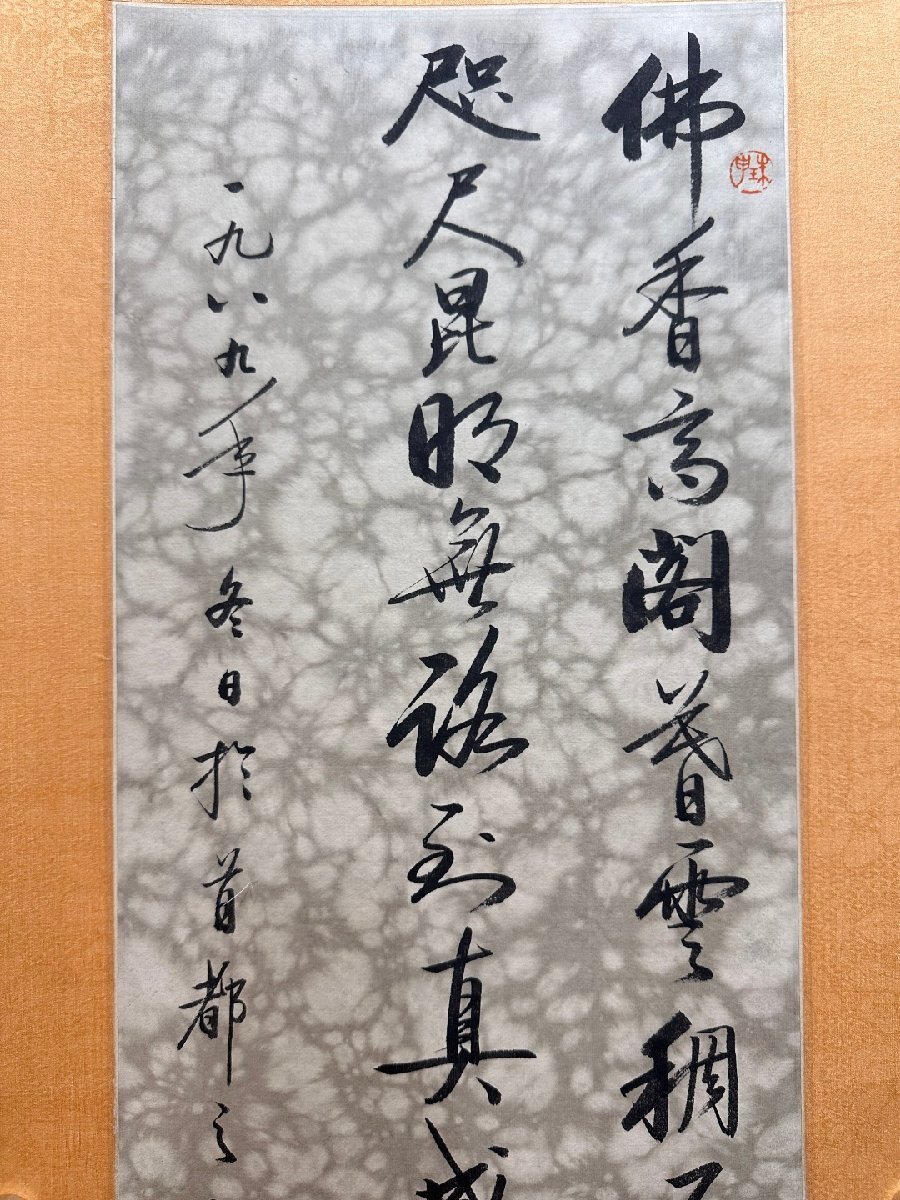 佛香高阁暮雲稠
咫尺昆明無路到真
一九八九年冬日於首都之